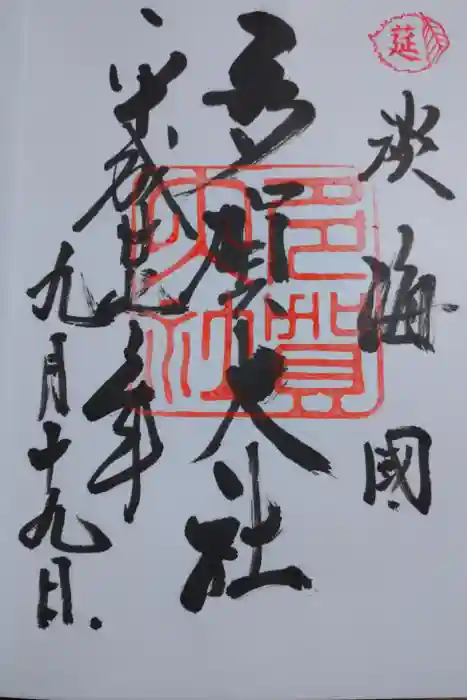 莚
淡海國
多賀大社
多賀大社
平成年
九月十九日